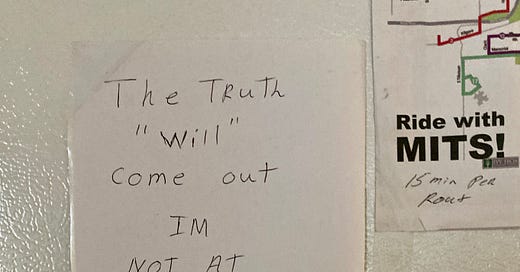 The TRuth
"Will"
Come out
IM
NOT AT
Ride with
MITS!
15 min Per
Rout